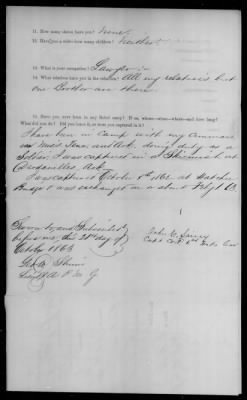 11. How many slaves have you? None
12. Have you a wife: how many children? Neither
13. What is your occupation? Lawyer
14. What relatives have you in the rebellion? All my relatives but
one Brother are there.
15. Have you ever been in any Rebel army? If so, whose—where—when—and how long?
What did you do? Did you leave it, or were you captured in it?
I have been in Camp with my Command
in Miss, Tenn, and Ark. doing duty as a
Soldier. I was captured in a Skirmish at
Dardanelles, Ark.
I was captured October 5th 1862 at Hatchie
Bridge & was exchanged on or about
Sworn to and Subscribed
before me, this 28th day of
October 1863
Geo
Lieut & A P M G
John
Capt Co